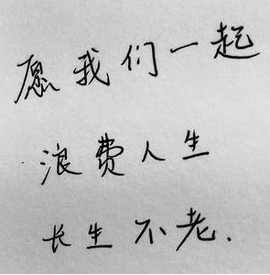 愿我们一起
浪费人生
长生不老.